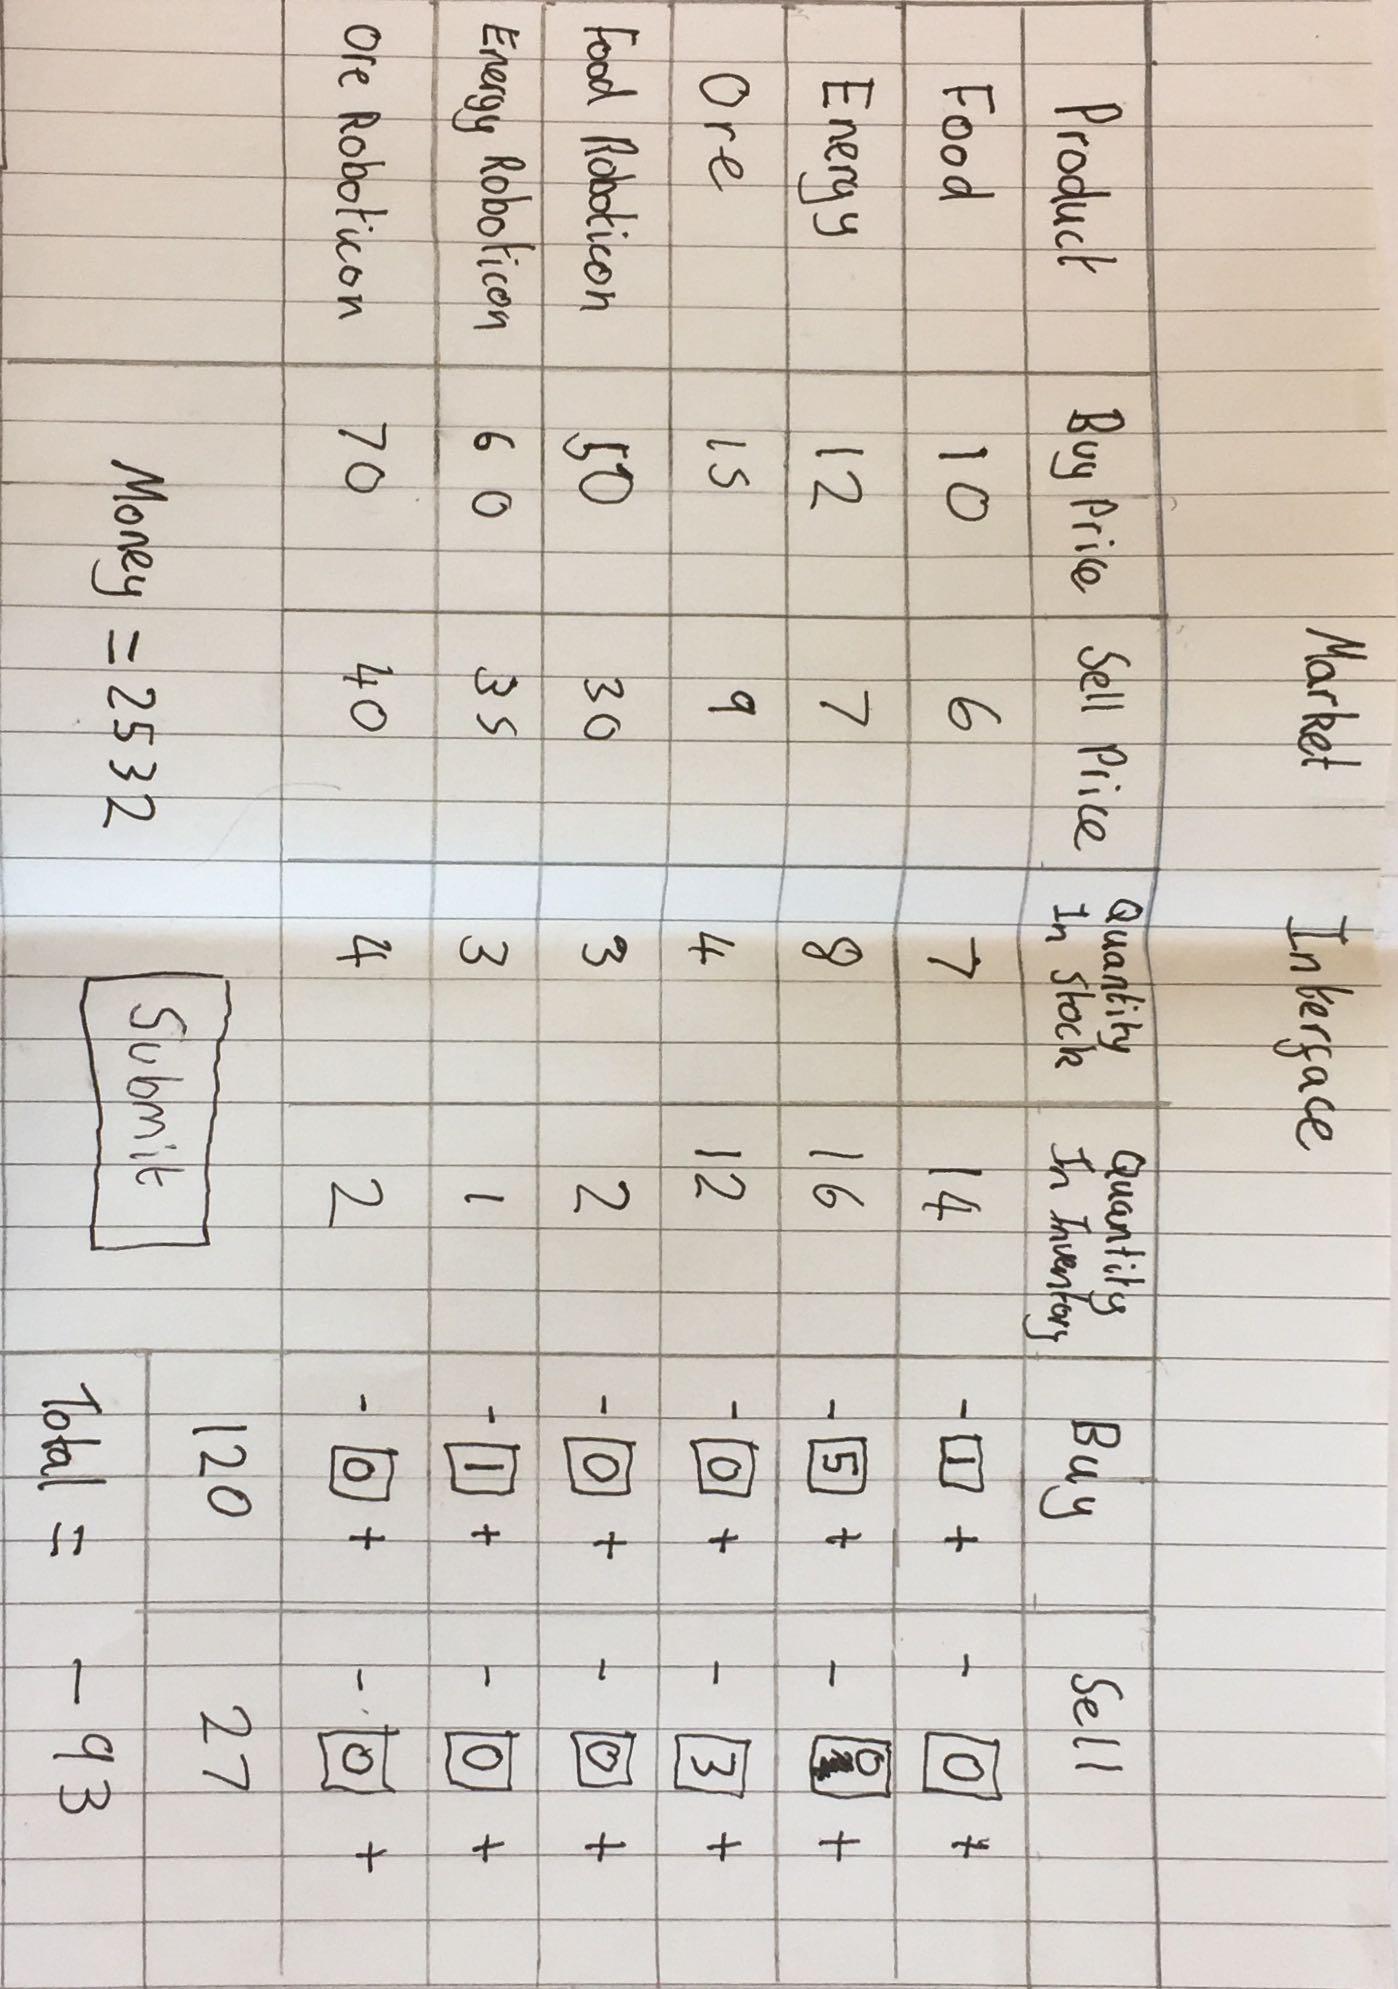 Market Interface
Product Buy Price Sell Price Quantity In Stock Quantity In Inventory Buy Sell
Food 10 6 7 14 - 1 + - 0 +
Energy 12 7 8 16 - 5 + - 0 +
Ore 15 9 4 12 - 0 + - 3 +
Food Roboticon 50 30 3 2 - 0 + - 0 +
Energy Roboticon 60 35 3 1 - 1 + - 0 +
Ore Roboticon 70 40 4 2 - 0 + - 0 +
120 27
Money = 2532 Submit Total = - 93